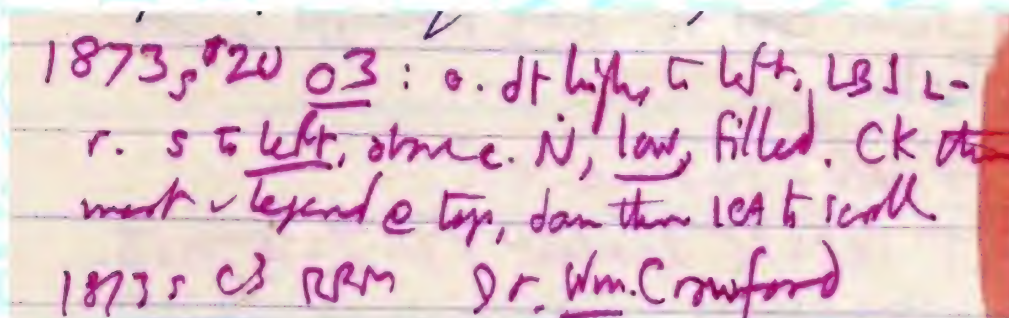 1873s $20 O3 : o. dt high, to left, LBJ L-
r. s to left, above c. N, low, filled. CK thru
most r legend @ top, down thru ICA to scroll.
1873s C3 RRM Dr. Wm. Crawford